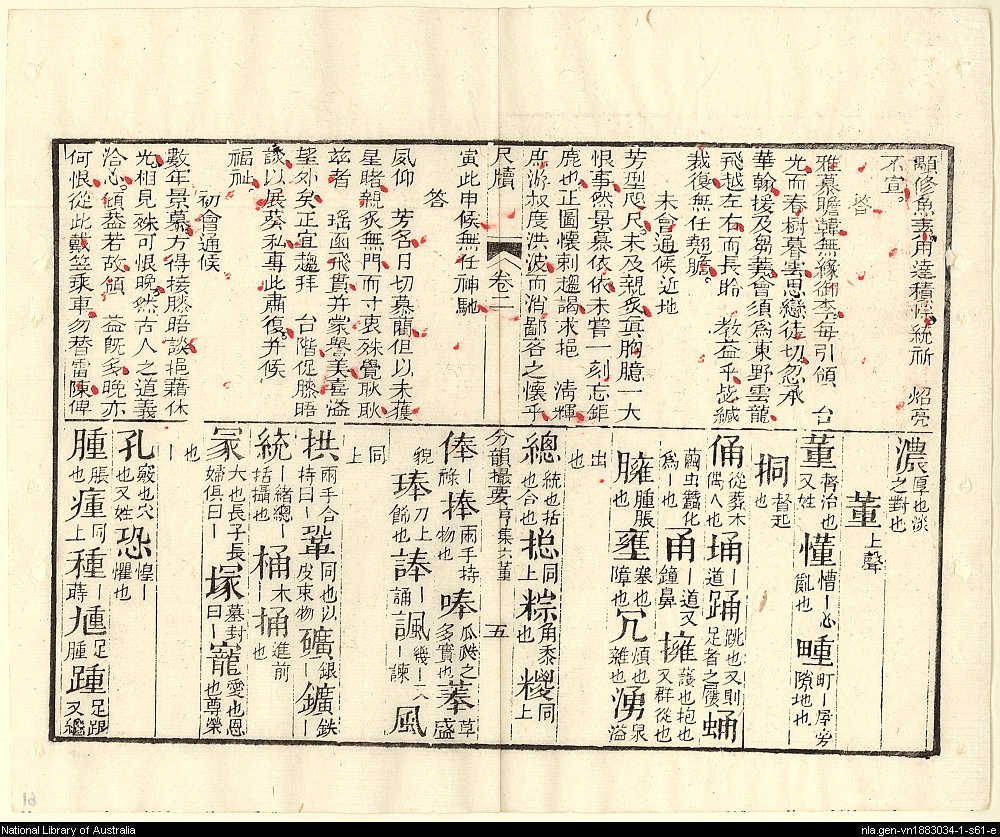 顓修魚素用達積悰統祈　炤亮
不宣。
答
雅慕瞻韓無緣御李每引領　台
光而春樹暮雲思戀徒切忽承
華翰援及芻蕘會須為東野雲龍
飛越左右而長聆　教益乎玆緘
裁復無任翹瞻。
未會通候近地
芳型咫尺未及親炙宣胸臆一大
恨事然景慕依依未嘗一刻忘鉅
鹿也正圖懷刺趨謁求挹　清輝
庶游叔度洪波而消鄙吝之懷乎
尺牘　卷二
寅此申候無任神馳
答
夙仰　芳名日切慕藺但以未獲
星睹親炙無門而寸衷殊覺耿耿
茲者　瑤函飛賁并蒙譽美喜溢
望外矣正宜趨拜　台階促膝晤
談以展葵私專此肅復。并候
福祉
初會通候
數年景慕方得接膝晤談挹藉休
光相見殊可恨晚然古人之道義
洽心。傾蓋若故領　益既多晚亦
何恨從此戴笠乘車勿替雷陳俾
濃厚也淡之對也
董上聲
董督治也又姓懂懵丨心亂也畽町丨屋旁隙地也
挏督起也
俑從葬木偶人也埇丨道踊跳也又則足者之屨蛹
繭虫蠶化為丨也甬丨道又鐘鼻擁護也抱也又群從也
臃腫脹也壅塞也障也冗煩也雜也湧泉溢
出也
總統也括也合也摠同上粽角黍也糉同上
分韻撮要亨集六董　五
俸丨祿捧兩手持物也唪瓜瓞之多實也菶草盛
貌琫刀上飾也諀丨誦也諷譏丨丨諫
同上
拱兩手合持曰丨鞏同也以皮束物礦銀丨鑛鉄丨
統丨緒總丨括攝也桶木丨捅進前也
冢大也長子長婦俱曰丨塚墓封曰丨寵愛也恩也尊榮
也丨
孔竅也穴也又姓恐惶丨懼也
腫脹也瘇同上種丨蒔尰足腫踵足跟又繼
National Library of Australia
nla.gen-vn1883034-1-s61-e